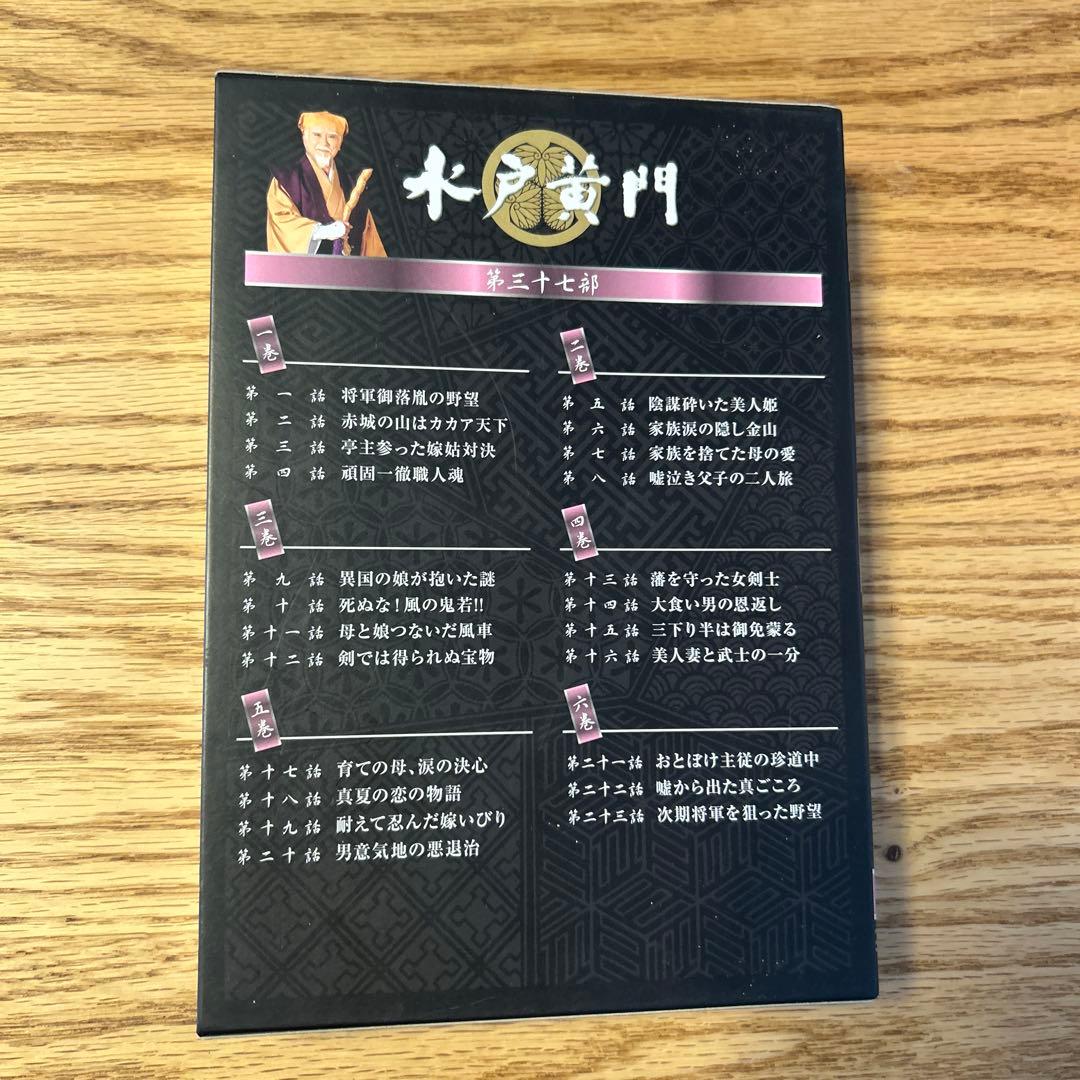 水戸黄門
第三十七部
一巻
第一話 将軍御落胤の野望
第二話 赤城の山はカカア天下
第三話 亭主参った嫁姑対決
第四話 頑固一徹職人魂
二巻
第五話 陰謀砕いた美人姫
第六話 家族涙の隠し金山
第七話 家族を捨てた母の愛
第八話 嘘泣き父子の二人旅
三巻
第九話 異国の娘が抱いた謎
第十話 死ぬな!風の鬼若!!
第十一話 母と娘つないだ風車
第十二話 剣では得られぬ宝物
四巻
第十三話 藩を守った女剣士
第十四話 大食い男の恩返し
第十五話 三下り半は御免蒙る
第十六話 美人妻と武士の一分
五巻
第十七話 育ての母、涙の決心
第十八話 真夏の恋の物語
第十九話 耐えて忍んだ嫁いびり
第二十話 男意気地の悪退治
六巻
第二十一話 おとぼけ主従の珍道中
第二十二話 嘘から出た真ごころ
第二十三話 次期将軍を狙った野望